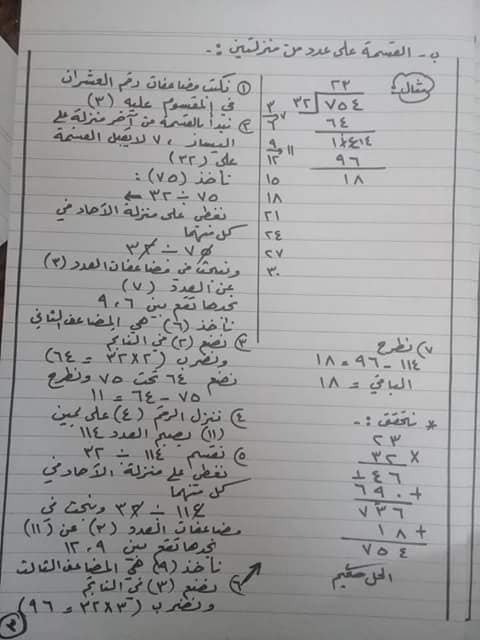 ب - القسمة على عدد من منزلتين :-
مثال
٢٣
٣٢ ٧٥٤
٦٤
١١٤
٩٦
١٨
٣
٦ ٧
٩
١٢ ١١
١٥
١٨
٢١
٢٤
٢٧
٣٠
① نكتب مضاعفات رقم العشرات
في المقسوم عليه (٣)
② نبدأ بالقسمة من آخر منزلة على
اليسار، ٧ لا يقبل القسمة
على (٣٢)
نأخذ (٧٥) :
٧٥ ÷ ٣٢ ←
نغطي على منزلة الآحاد في
كل منهما
٧٥ ÷ ٣٢
ونبحث في مضاعفات العدد (٣)
عن العدد (٧)
نجدها تقع بين ٦، ٩
نأخذ (٦) هي المضاعف الثاني
③ نضع (٢) في الناتج
ونضرب (٢×٣٢ = ٦٤)
نضع ٦٤ تحت ٧٥ ونطرح
٧٥ - ٦٤ = ١١
④ ننزل الرقم (٤) على يمين
(١١) يصبح العدد ١١٤
⑤ نقسم ١١٤ ÷ ٣٢
نغطي على منزلة الآحاد في
كل منهما
١١٤ ÷ ٣٢ ونبحث في
مضاعفات العدد (٣) عن (١١)
نجدها تقع بين ٩، ١٢
نأخذ (٩) هي المضاعف الثالث
⑥ نضع (٣) في الناتج
ونضرب (٣×٣٢ = ٩٦)
٧) نطرح
١١٤ - ٩٦ = ١٨
الباقي = ١٨
* نتحقق :-
٢٣
٣٢ ×
٤٦
٦٩٠ +
٧٣٦
١٨ +
٧٥٤
الحل صحيح
٣